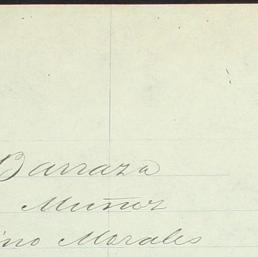 Barraza
Muñoz
ino Morales